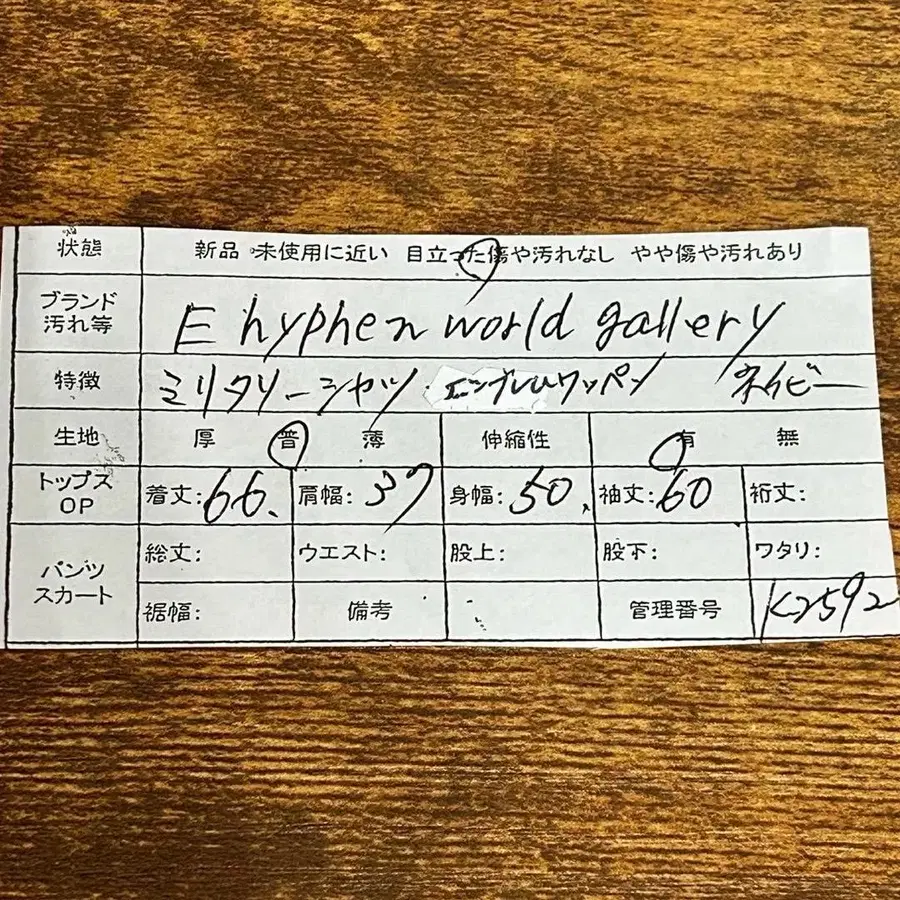 状態 新品 未使用に近い 目立った傷や汚れなし やや傷や汚れあり
ブランド 汚れ等 E hyphen world gallery
特徴 ミリタリーシャツ・エンブレムワッペン ネイビー
生地 厚 普 薄 伸縮性 有 無
トップス OP 着丈:66 肩幅:37 身幅:50 袖丈:60 裄丈:
パンツ スカート 総丈: ウエスト: 股上: 股下: ワタリ:
裾幅: 備考 管理番号 K2592